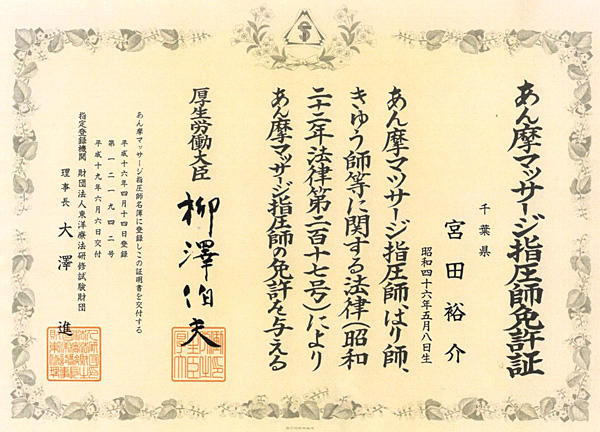 あん摩マッサージ指圧師免許証
千葉県
宮田裕介
昭和四十六年五月八日生
あん摩マッサージ指圧師、はり師、
きゅう師等に関する法律（昭和
二十二年法律第二百十七号）により
あん摩マッサージ指圧師の免許を与える
厚生労働大臣 柳澤伯夫
あん摩マッサージ指圧師名簿に登録しこの証明書を交付する
平成十六年四月十四日登録
第一二一九四二号
平成十九年六月六日交付
指定登録機関 財団法人東洋療法研修試験財団
理事長 大澤進